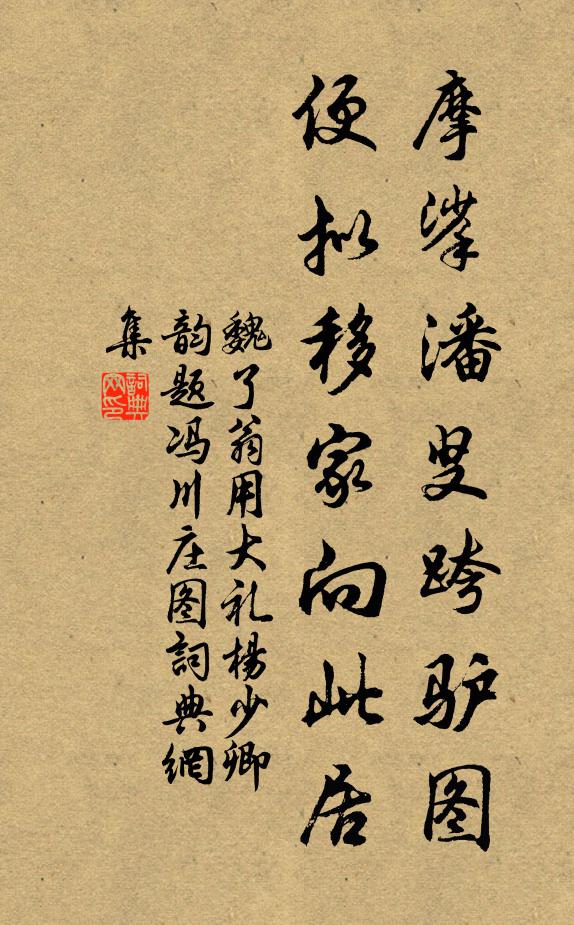 摩挲潘叟跨驴图
便拟移家向此居
魏了翁用大礼杨少卿
韵题冯川庄图詞典網
集
詞典
网印